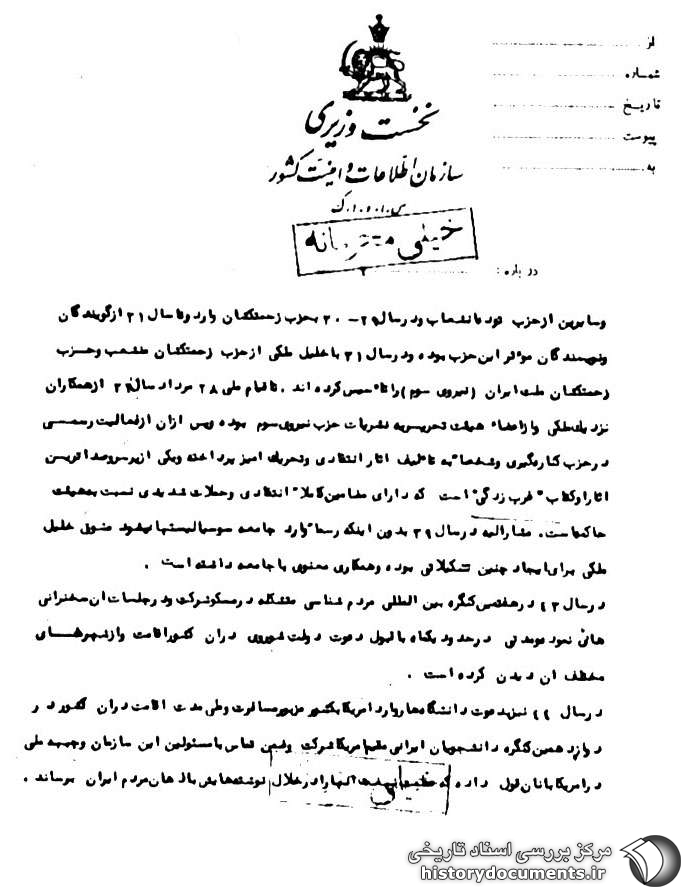 از
شماره
تاریخ
پیوست
به
نخست وزیری
سازمان اطلاعات و امنیت کشور
س.ا.و.ا.ک
خیلی محرمانه
درباره :
وسایرین ازحزب توده انشعاب ودرسال ۲۹-۳۰ بحزب زحمتکشان وارد وتا سال ۳۱ ازگویندگان
ونویسندگان موثر این حزب بوده ودرسال ۳۱ با خلیل ملکی ازحزب زحمتکشان منشعب وحزب
زحمتکشان ملت ایران (نیروی سوم) را تاسیس کرده اند . تا قیام ملی ۲۸ مرداد سال ۳۲ ازهمکاران
نزدیک ملکی وازاعضاء هیئت تحریریه نشریات حزب نیروی سوم بوده وپس ازان ازفعالیت رسمی
درحزب کناره گیری وشخصا به تالیف اثار انتقادی وتحریک امیز پرداخته ویکی ازپرسروصداترین
اثاراوکتاب " غرب زدگی " است که دارای مضامین کاملا انتقادی وحملات شدیدی نسبت به هیئت
حاکمه است. مشارالیه درسال ۳۹ بدون اینکه رسما وارد جامعه سوسیالیستها بشود مشوق خلیل
ملکی برای ایجاد چنین تشکیلاتی بوده وهمکاری معنوی با جامعه داشته است .
درسال ۴۳ درهفتمین کنگره بین المللی مردم شناسی متشکله درمسکوشرکت ودرجلسات ان سخنرانی
هائی نمود ومدتی درحدود یکماه با قبول دعوت دولت شوروی دران کشوراقامت وازشهرهای
مختلف ان دیدن کرده است .
درسال ۴۴ نیزبدعوت دانشگاه هاروارد امریکا بکشور مزبورمسافرت وطی مدت اقامت دران کشور در
دوازدهمین کنگره دانشجویان ایرانی مقیم امریکا شرکت وضمن تماس با مسئولین این سازمان وجبهه ملی
درامریکا بانان قول داده که نیت انها را درخلال نوشته هایش به اذهان مردم ایران برساند .
خیلی
مرکز بررسی اسناد تاریخی
historydocuments.ir